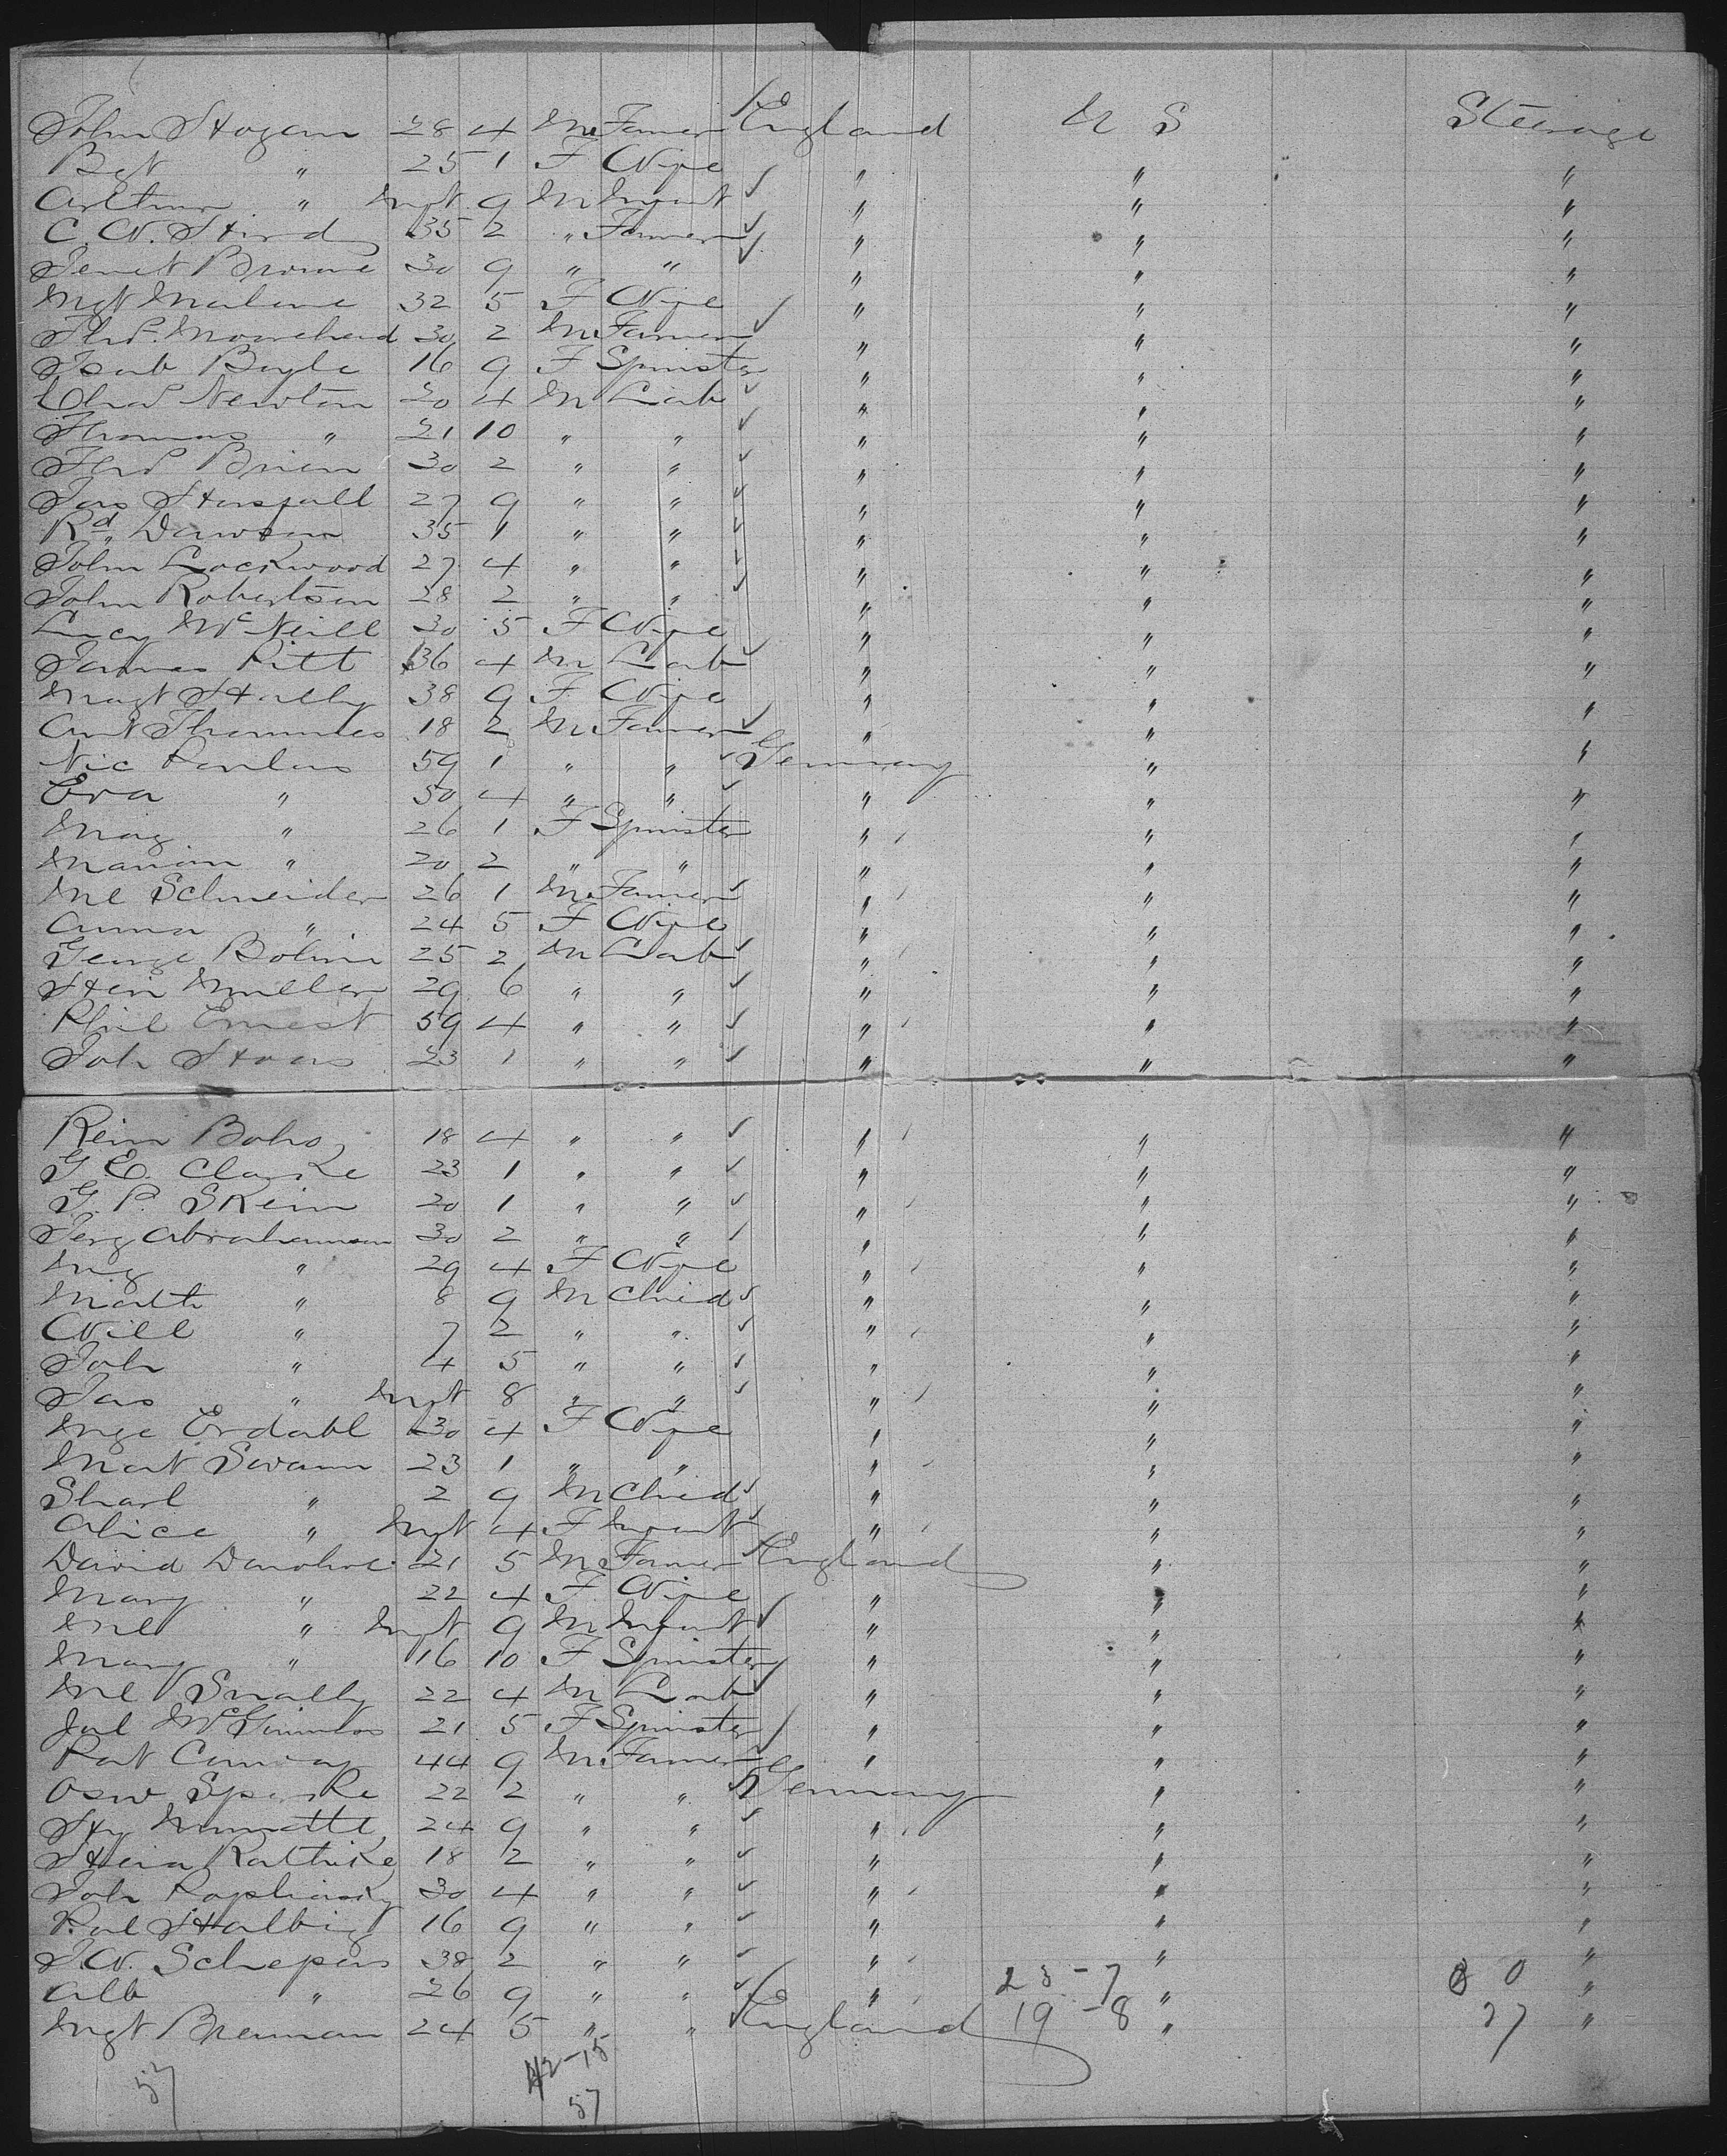 John Hogan 28 4 M Farmer England U S Steerage
Bgt " 25 1 F Wife " " "
Arthur " Inft 9 M Infant " " "
C. W. Hird 35 2 " Farmer " " "
Brown 30 9 " " " " "
Mgt Malone 32 5 F Wife " " "
Thos. Moorehead 30 2 M Farmer " " "
Isab Boyle 16 9 F Spinster " " "
Chas Newton 20 4 M Lab " " "
Thomas " 21 10 " " " " "
Thos Brien 30 2 " " " " "
Jas Horsfall 27 9 " " " " "
Rd Dawson 35 1 " " " " "
John Lockwood 27 4 " " " " "
John Robertson 28 2 " " " " "
Lucy McNeill 30 5 F Wife " " "
James Pitt 36 4 M Lab " " "
Magt Hally 38 9 F Wife " " "
Ant Thommes 18 2 M Farmer " " "
Nic 59 1 " " Germany " "
Eva " 50 4 " " " " "
Mag " 26 1 F Spinster " " "
Mariam " 20 2 " " " " "
Ml Schneider 26 1 M Farmer " " "
Anna " 24 5 F Wife " " "
George Bohm 25 2 M Lab " " "
Hein Muller 29 6 " " " " "
Phil Ernest 59 4 " " " " "
Joh Haas 23 1 " " " " "
Rein Bohs 18 4 " " " " "
G. E. Clarke 23 1 " " " " "
G. P. Skein 20 1 " " " " "
Jerg Abrahamson 30 2 " " " " "
Mg " 29 4 F Wife " " "
Math " 8 9 M Child " " "
Will " 7 2 " " " " "
Joh " 4 5 " " " " "
Jas " Inft 8 " " " " "
Inge Erdahl 30 4 F Wife " " "
Mart Swann 23 1 " " " " "
Sharl " 2 9 M Child " " "
Alice " Inft 4 F Infant " " "
David Donohoe 21 5 M Farmer England " "
Mary " 22 4 F Wife " " "
Ml " Inft 9 M Infant " " "
Mary " 16 10 F Spinster " " "
Ml Snally 22 4 M Lab " " "
Jul McGinness 21 5 F Spinster " " "
Pat Conway 44 9 M Farmer " " "
Osw 22 2 " " Germany " "
Hy 24 9 " " " " "
Hein Rathike 18 2 " " " " "
Joh 30 4 " " " " "
Halbig 16 9 " " " " "
J. W. Schepers 38 2 " " " " "
Alb " 26 9 " " " 23-7 " 0 "
Mgt Brennan 24 5 " " England 19-8 " 27 "
42-15
57 57